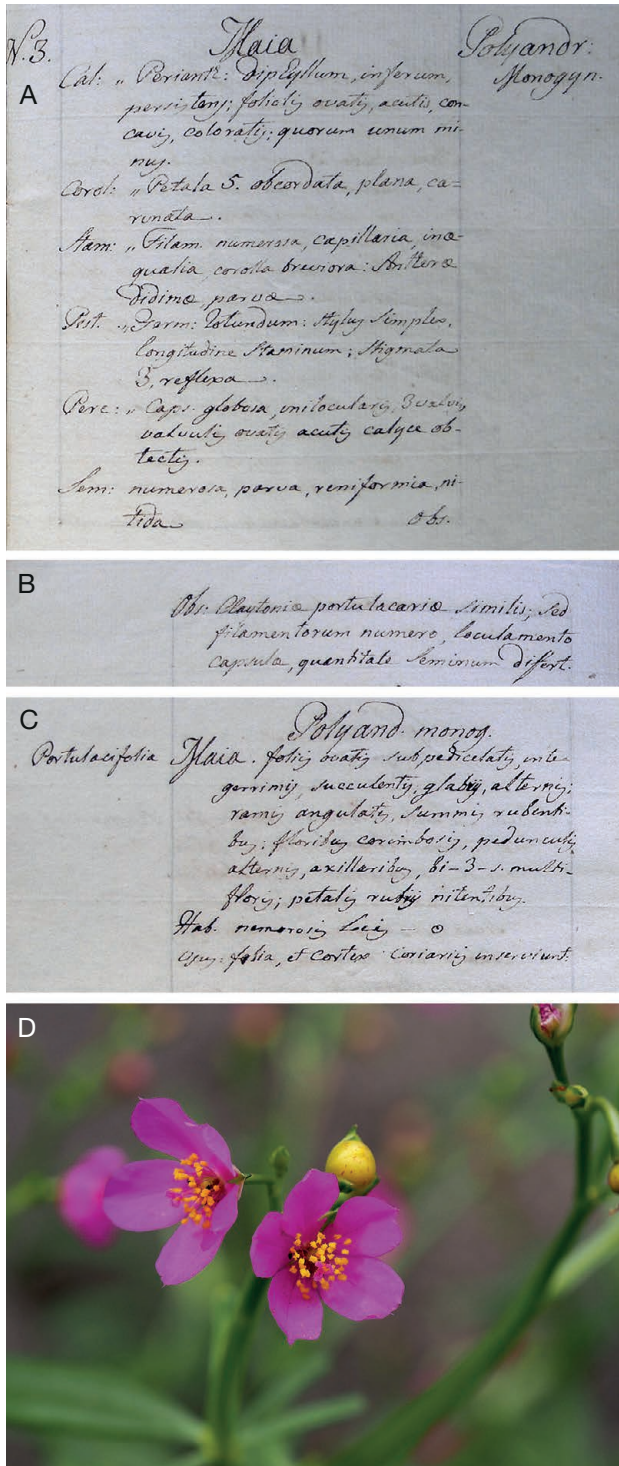 N. 3. Maia Polyandr:
Monogyn.
A
Cal: „ Perianth: diphyllum, inferum,
persistens; foliolis ovatis, acutis, con-
cavis, coloratis; quorum unum mi-
nus.
Corol: „ Petala 5. obcordata, plana, ca-
rinata.
Stam: „ Filam. numerosa, capillaria, inæ-
qualia, corolla breviora: Antheræ
didimæ, parvæ.
Pist. „ Germ: rotundum: stylus simplex,
longitudine staminum; stigmata
3, reflexa.
Peric: „ Caps. globosa, unilocularis, 3valvis,
valvulis ovatis acutis calyce ob-
tectis.
Sem: numerosa, parva, reniformia, ni-
tida Obs.
B
Obs: Claytoniæ portulacariæ similis; sed
filamentorum numero, loculamento
capsula, quantitate seminum difert.
C
Polyand. monog.
Portulacifolia Maia. foliis ovatis subpedicelatis, inte-
gerrimis, succulentis, glabris, alternis;
ramis angulatis, summis rubenti-
bus: floribus corimbosis, pedunculis
alternis, axillaribus, bi-3-s. multi-
floris; petalis rubris nitentibus.
Hab. nemorosis locis — ⊙
Usus: folia, et cortex coriariis inserviunt.
D